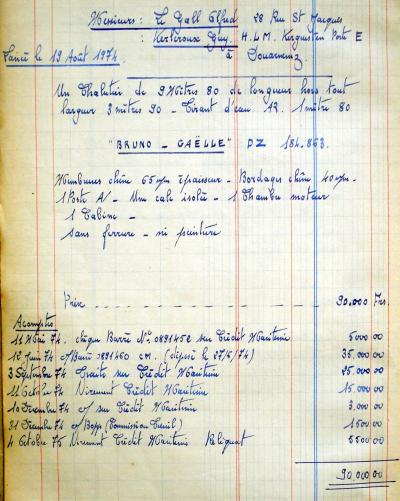 Messieurs : Le Gall Alfred 28 Rue St Jacques
: Kerloroux Guy, H.L.M. Kerguesten Porte E
Lancé le 19 Août 1974. à Douarnenez
Un Chalutier de 9 Mètres 80 de longueur hors tout
largeur 3 mètres 90 - Tirant d'eau AR. 1 mètre 80
"BRUNO - GAËLLE" DZ 184.863.
Membrures chêne 65 m/m épaisseur - Bordages chêne 40 m/m -
1 Poste AV - Une cale isolée - 1 Chambre moteur
1 Cabine -
sans ferrure - ni peinture
Prix 90.000 Frs.
Acomptes
11 Mai 74. chèque Barré N° 0891452 sur Crédit Maritime 5000 00
1er Juin 74 c/Barré 0891460 CM. (déposé le 27/6/74) 35.000 00
3 Septembre 74 Traite sur Crédit Maritime 25.000 00
Octobre 74 Virement Crédit Maritime 15 000 00
10 Décembre 74 c/ sur Crédit Maritime 3.000 00
31 Décembre 74 c/ (Commission Treuil) 1500 00
4 Octobre 75 Virement Crédit Maritime Reliquat 5500 00
90.000 00